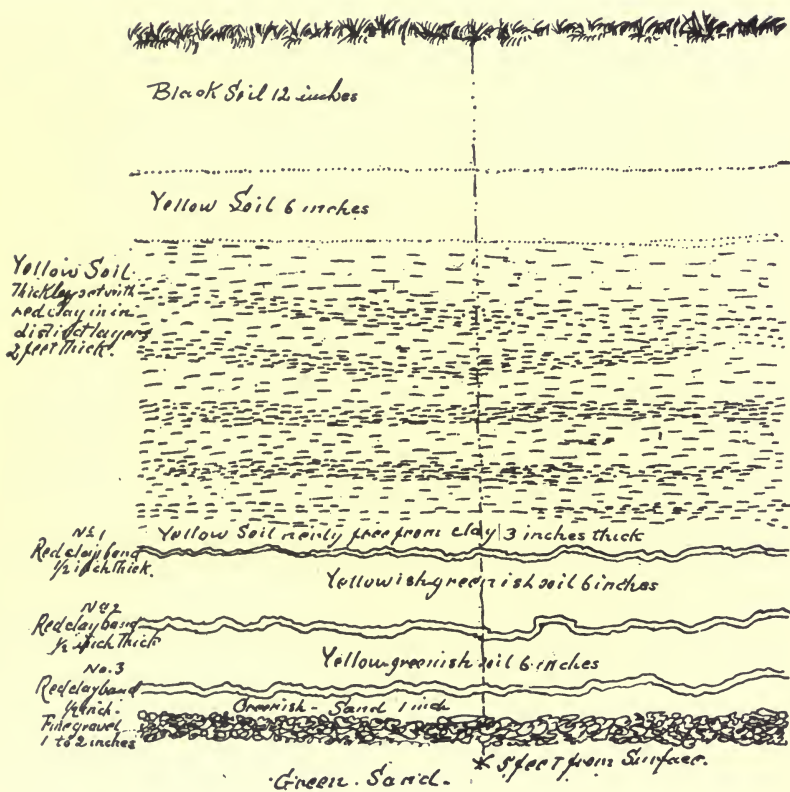 Black Soil 12 inches
Yellow Soil 6 inches
Yellow Soil.
Thickley set with
red clay in in
distinct layers
2 feet thick.
Yellow Soil nearly free from clay 3 inches thick
No 1
Red clay band
1/2 inch thick.
Yellowish greenish soil 6 inches
No 2
Red clay band
1/2 inch thick
Yellow greenish soil 6 inches
No. 3
Red clay band
1/2 inch.
Greenish - Sand 1 inch
Fine gravel
1 to 2 inches
* 5 feet from Surface.
Green. Sand.